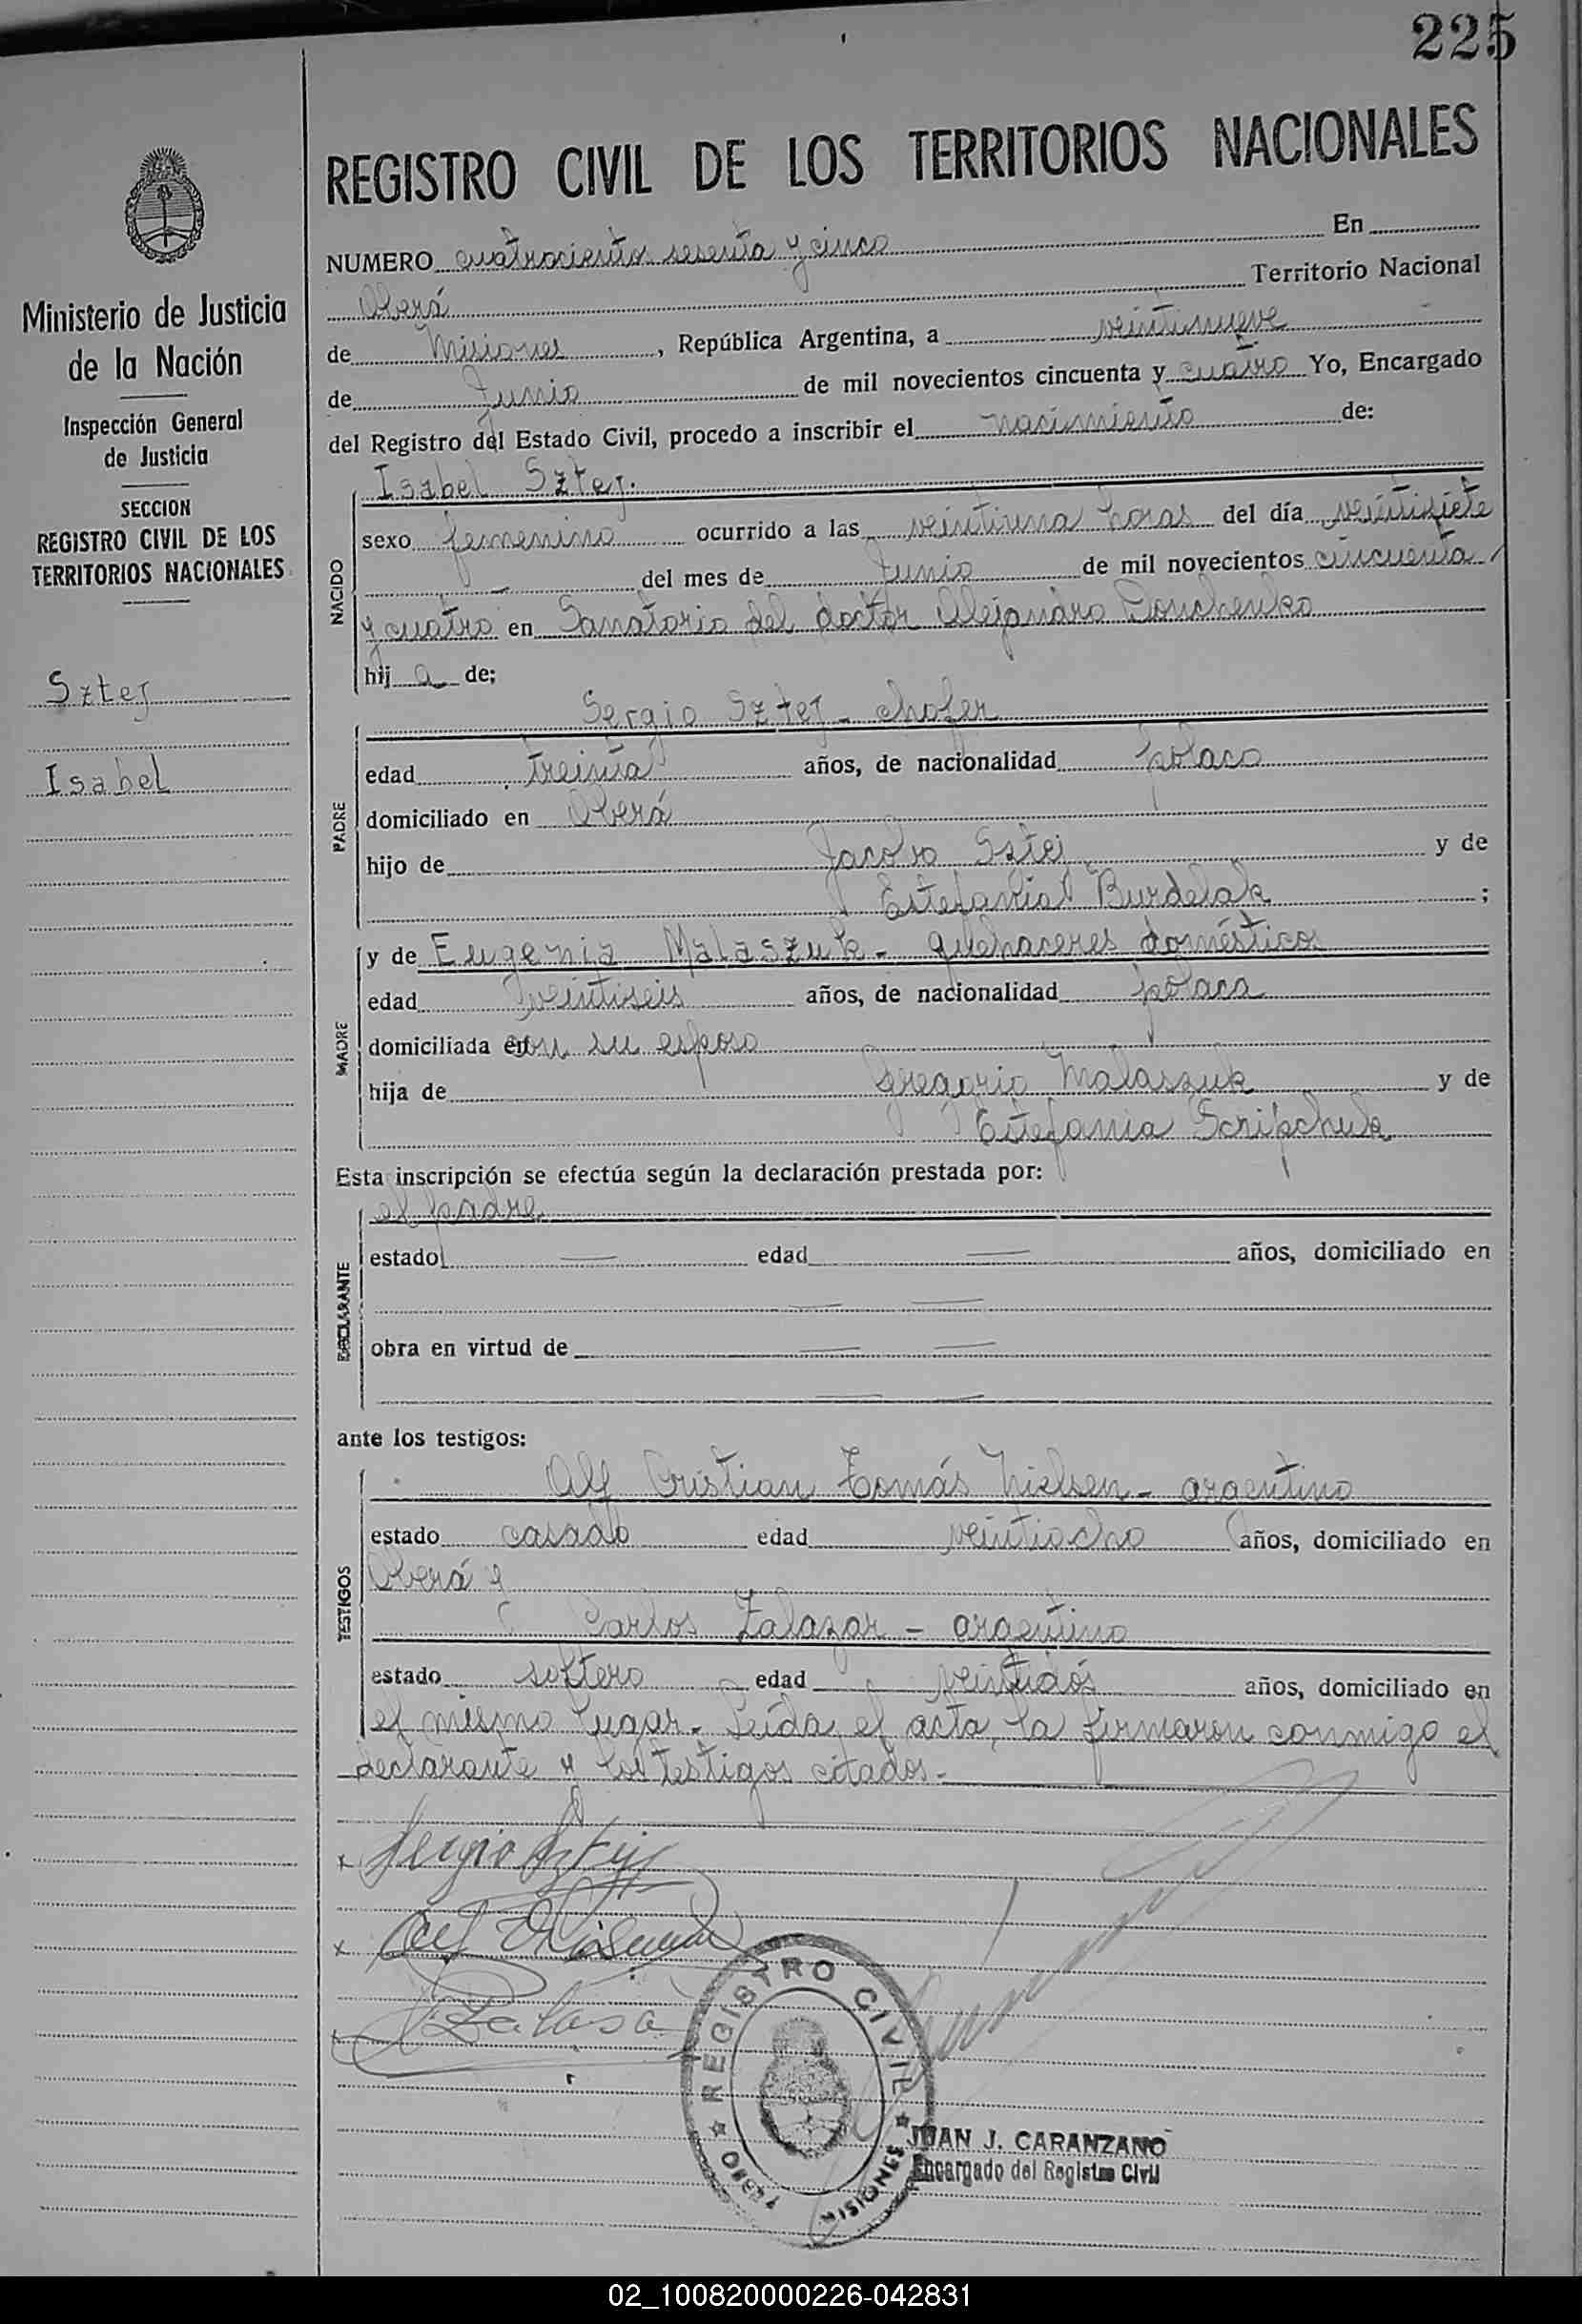 225
REGISTRO CIVIL DE LOS TERRITORIOS NACIONALES
Ministerio de Justicia
de la Nación
Inspección General
de Justicia
SECCION
REGISTRO CIVIL DE LOS
TERRITORIOS NACIONALES
Sztej
Isabel
NUMERO cuatrocientos sesenta y cinco En
Oberá Territorio Nacional
de Misiones, República Argentina, a veintinueve
de Junio de mil novecientos cincuenta y cuatro Yo, Encargado
del Registro del Estado Civil, procedo a inscribir el nacimiento de:
NACIDO
Isabel Sztej.
sexo femenino ocurrido a las veintiuna horas del día veintisiete
del mes de Junio de mil novecientos cincuenta
y cuatro en Sanatorio del doctor Alejandro
hij a de;
PADRE
Sergio Sztej - chofer
edad treinta años, de nacionalidad polaco
domiciliado en Oberá
hijo de Jacobo Sztej y de
Estefania Burdelak ;
MADRE
y de Eugenia Malaszuk - quehaceres domésticos
edad veintiseis años, de nacionalidad polaca
domiciliada en con su esposo
hija de Gregorio Malaszuk y de
Estefania Scripchuk
Esta inscripción se efectúa según la declaración prestada por:
DECLARANTE
el padre
estado edad años, domiciliado en
obra en virtud de
ante los testigos:
TESTIGOS
Alf Cristian Tomás Nielsen - argentino
estado casado edad veintiocho años, domiciliado en
Oberá y
Carlos Zalazar - argentino
estado soltero edad veintidós años, domiciliado en
el mismo lugar. Leída el acta, la firmaron conmigo el
declarante y los testigos citados.-
x Sergio Sztej
x
REGISTRO CIVIL
OBERA MISIONES
JUAN J. CARANZANO
Encargado del Registro Civil
02_100820000226-042831